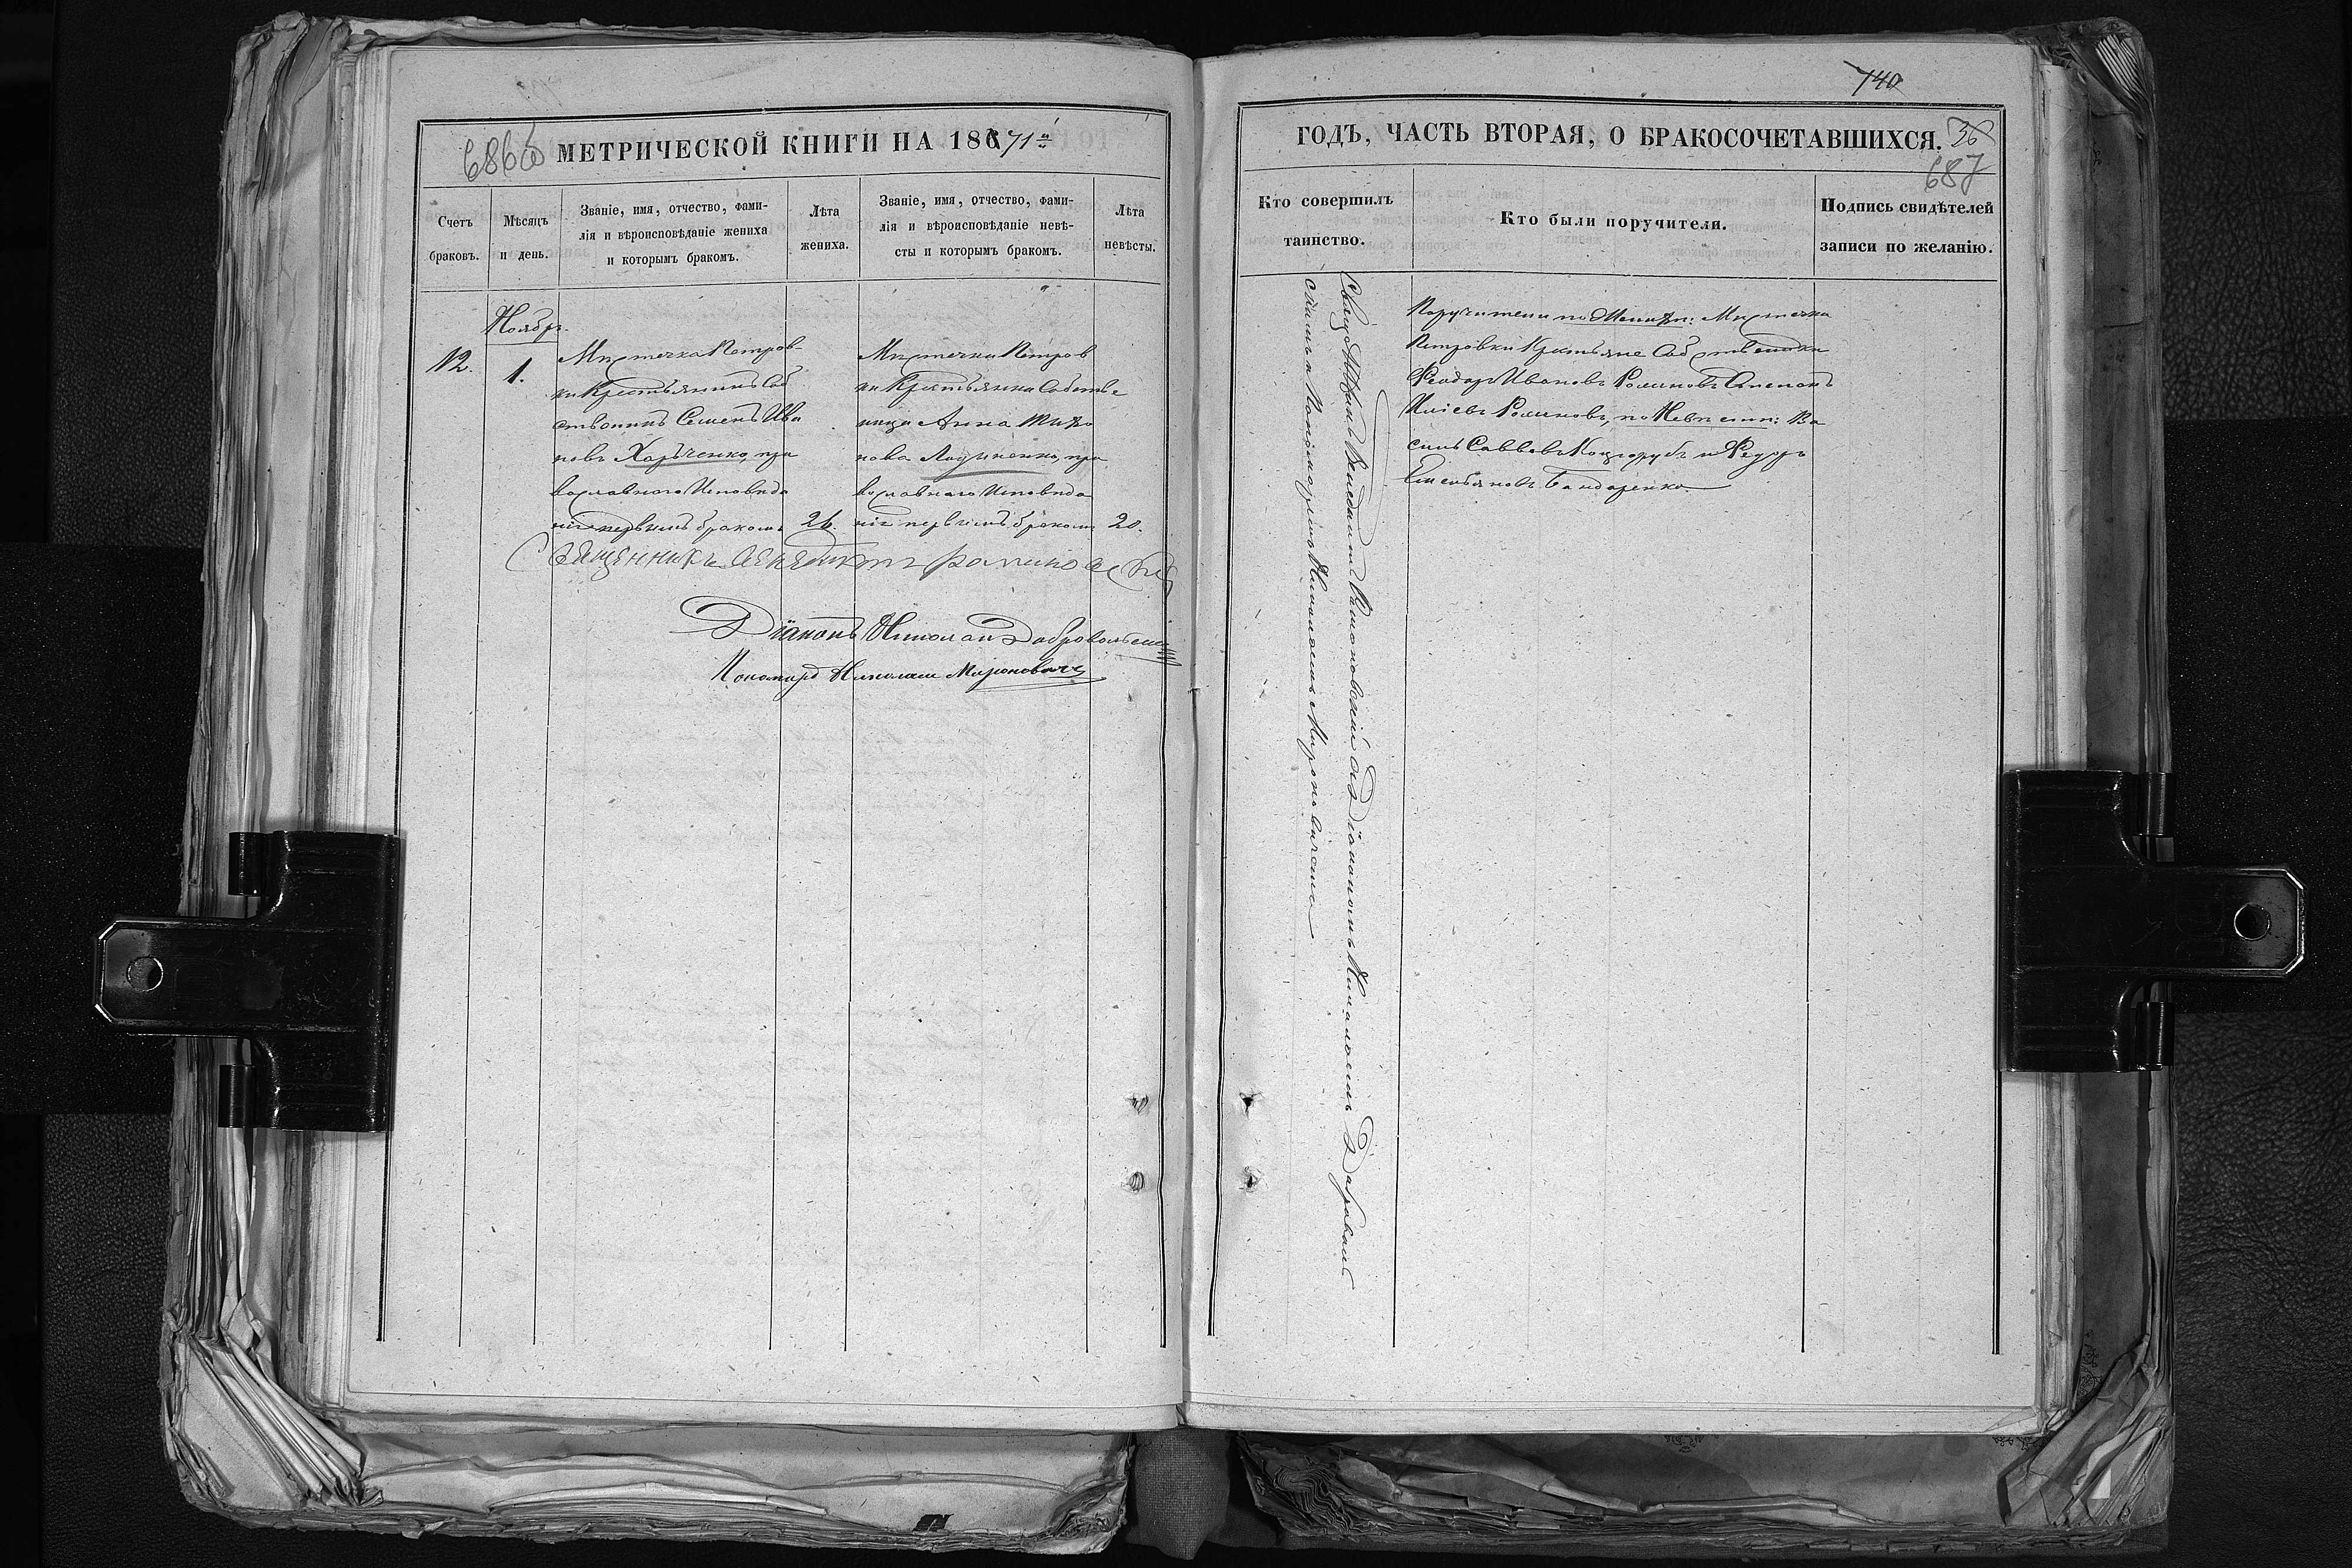 686об
МЕТРИЧЕСКОЙ КНИГИ НА 1871й
Счетъ браковъ.
Мѣсяцъ и день.
Званіе, имя, отчество, фами-
лія и вѣроисповѣданіе жениха
и которымъ бракомъ.
Лѣта жениха.
Званіе, имя, отчество, фами-
лія и вѣроисповѣданіе невѣ-
сты и которымъ бракомъ.
Лѣта невѣсты.
Ноябрь.
12.
1.
Мѣстечка Петров-
ки Крестьянинъ Соб
ственникъ Семенъ Ива
новъ Харченко, пра
вославнаго Исповѣда
нія первымъ бракомъ
26.
Мѣстечка Петров
ки Крестьянка Собстве
нница Анна
нова пра
вославнаго Исповѣда
нія первымъ бракомъ
20.
Священникъ Венедиктъ Романовскій
Діаконъ Николай Добровольскій
Пономарь Николай Мироновичъ
740
ГОДЪ, ЧАСТЬ ВТОРАЯ, О БРАКОСОЧЕТАВШИХСЯ.
36
687
Кто совершилъ
таинство.
Кто были поручители.
Подпись свидѣтелей
записи по желанію.
Венедиктъ Романовскій съ Діакономъ Николаемъ Доброволь
скимъ и Пономаремъ Николаемъ Мироновичемъ
Поручители по Женихѣ: Мѣстечка
Петровки Крестьяне Собственники
Феодоръ Ивановъ Романовъ Степанъ
Иліевъ Романовъ, по Невѣстѣ: Ва
силь Саввовъ и Федоръ
Емельяновъ Бандаренко.